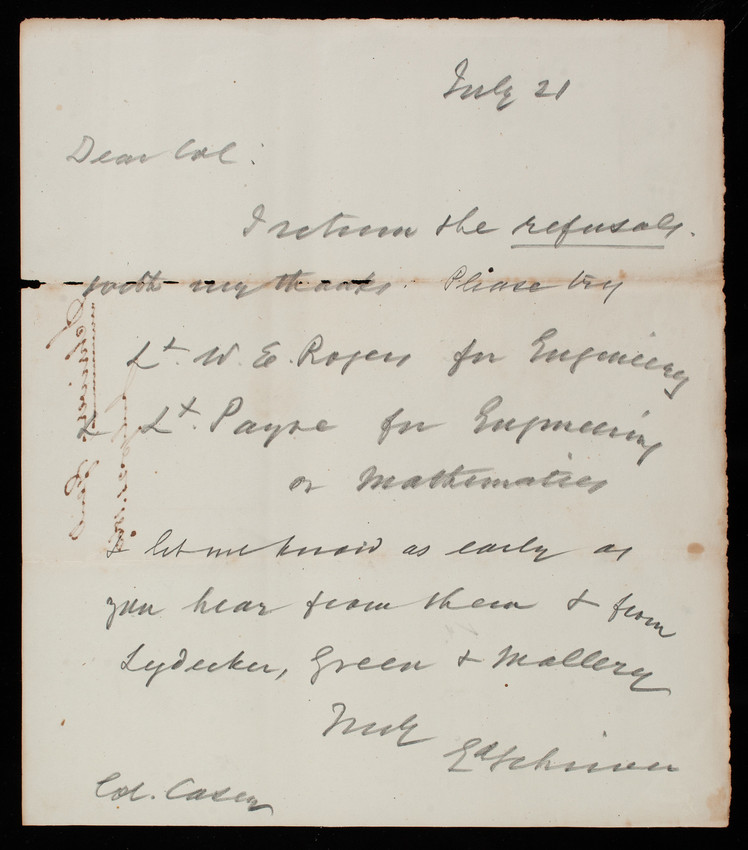 July 21
Dear Col.
I return the refusals.
with my thanks. Please try
Lt. W. E. Rogers for Engineering
& Lt. Payne for Engineering
or Mathematics
& let me know as early as
you hear from them & from
Lydecker, Green & Mallery
Truly
Ed Schriver
Col. Casey